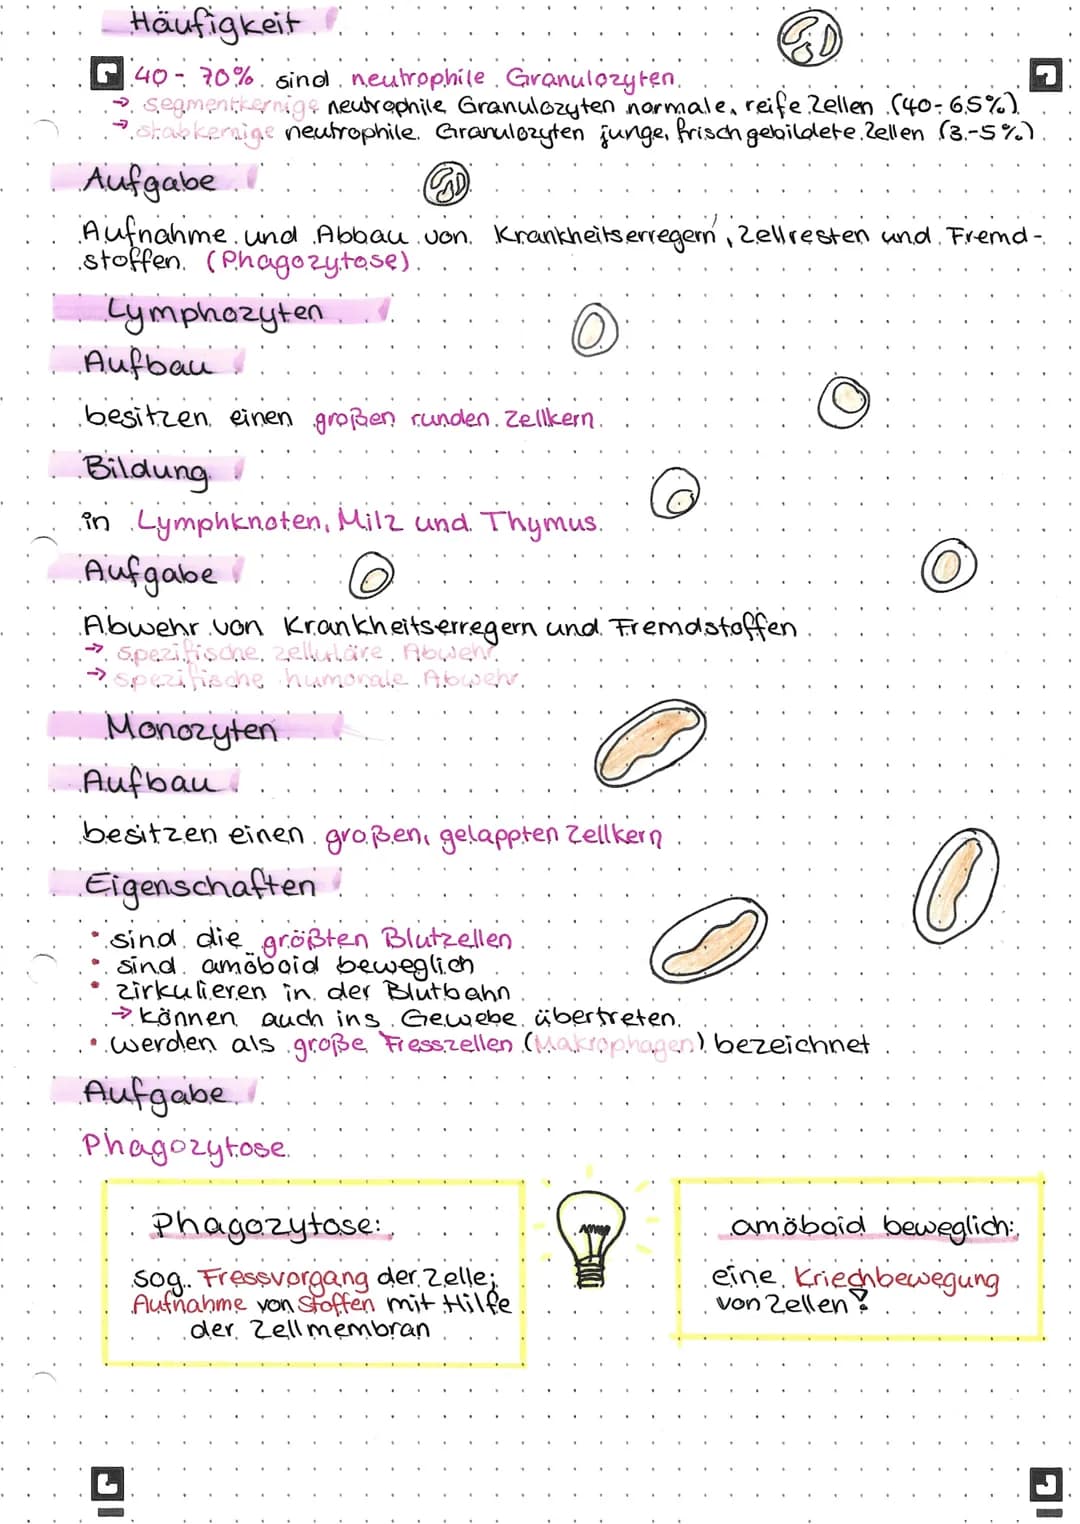 Häufigkeit
40 - 70% sind neutrophile Granulozyten
→ segmentkernige neutrophile Granulozyten normale, reife Zellen (40-65%)
→ stabkernige neutrophile Granulozyten junge, frisch gebildete Zellen (3-5%)
Aufgabe
Aufnahme und Abbau von Krankheitserregern, Zellresten und Fremd-
stoffen. (Phagozytose)
Lymphozyten
Aufbau
besitzen einen großen runden Zellkern.
Bildung
in Lymphknoten, Milz und Thymus.
Aufgabe
Abwehr von Krankheitserregern und Fremdstoffen
→ spezifische zelluläre Abwehr
→ spezifische humorale Abwehr
Monozyten
Aufbau
besitzen einen großen, gelappten Zellkern
Eigenschaften
• sind die größten Blutzellen
• sind amöboid beweglich
• zirkulieren in der Blutbahn
→ können auch ins Gewebe übertreten.
• werden als große Fresszellen (Makrophagen) bezeichnet
Aufgabe
Phagozytose
Phagozytose:
sog. Fressvorgang der Zelle;
Aufnahme von Stoffen mit Hilfe
der Zellmembran
amöboid beweglich:
eine Kriechbewegung
von Zellen!